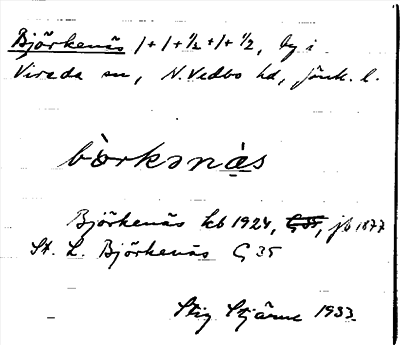 Björkenäs 1+1+½+1+½, by i
Vireda sn, N. Vedbo hd, Jönk. l.
bö̀rkənä̀s
Björkenäs kb 1924, G 35, jb 1877
St. L. Björkenäs G 35
Stig Stjärne 1933